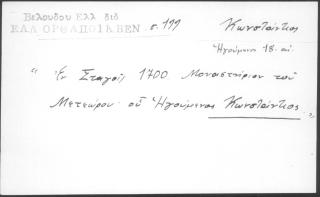 Βελουδου Ελλ διδ
ΕΛΛ ΟΡΘ ΑΠΟΙΚ ΒΕΝ σ. 177 Κωνστάντιος
Ἡγούμενος 18. αἰ.
"Ἐν Σταγοῖς 1700 Μοναστήριον τοῦ
Μετεώρου οὗ Ἡγούμενος Κωνστάντιος"